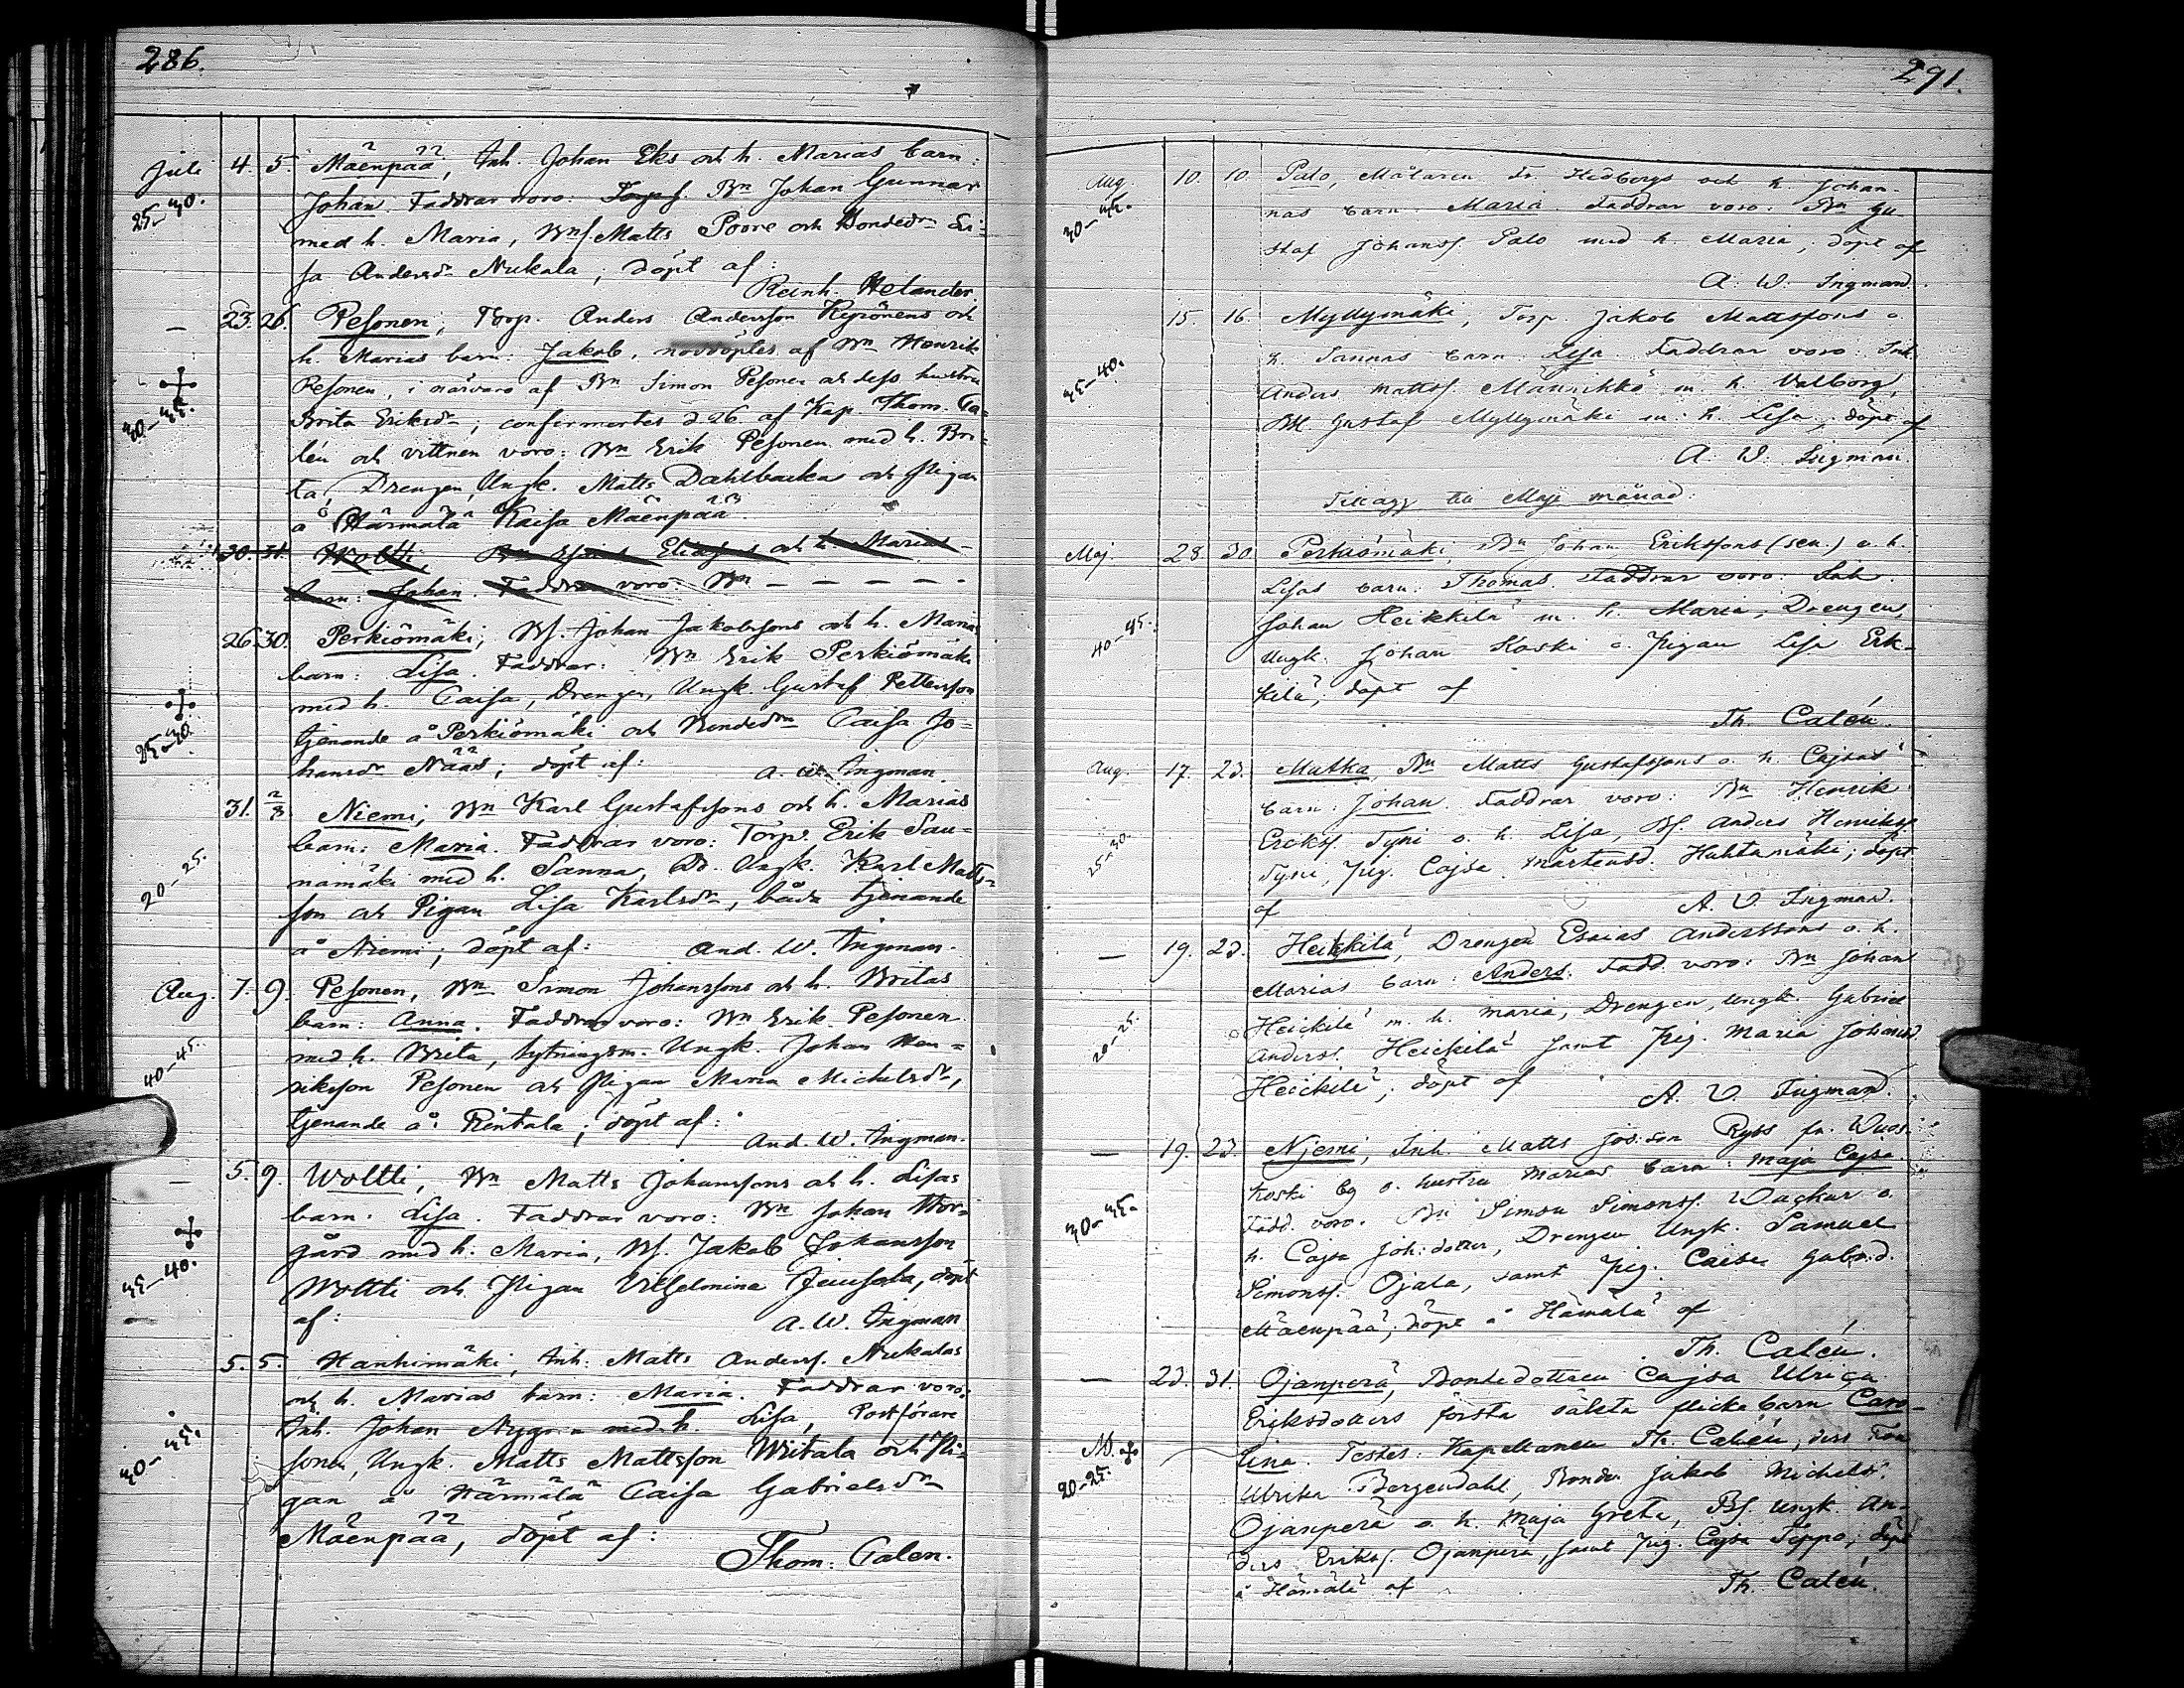 286.
Juli 4. 5. Mäenpää, Inh. Johan Eks och h. Marias barn:
25–30. Johan. Faddrar voro: Torps. Bn Johan Gunnar
med h. Maria, Bns. Matts Poore och Bondedr Li-
sa Andersdr Nukala; döpt af:
Reinh. Helander.
— 23. 26. Pesonen, Torp. Anders Andersson Keisönens och
h. Marias barn: Jakob, nöddöptes af Bn Henrik
Pesonen, i närvaro af Bn Simon Pesonen och dess hustru
30–35. Brita Eriksdr; confirmertes d. 26 af Kap. Thom. Ca-
lén och vittnen voro: Bn Erik Pesonen med h. Bri-
ta, Drengen, Ungk. Matts Dahlbacka och Pigan
å Härmälä Kaisa Mäenpää
30. 31. Woltti, Bn Esaias Eliassons och h. Marias
barn: Johan. Faddrar voro: Bn — — — — —
26. 30. Perkiömäki, Bs. Johan Jakobssons och h. Marias
barn: Lisa. Faddrar: Bn Erik Perkiömäki
med h. Caisa, Drengen, Ungk. Gustaf Pettersson
25–30 tjenande å Perkiömäki och Bondedrn Caisa Jo-
hansdr Nääs; döpt af: A. W. Ingman.
31. 2/8 Niemi, Bn Karl Gustafssons och h. Marias
barn: Maria. Faddrar voro: Torp. Erik Sau-
20–25. namäki med h. Sanna, Dr. Ungk. Karl Matts-
son och Pigan Lisa Karlsdr, båda tjenande
å Niemi; döpt af: And. W. Ingman.
Aug. 7. 9. Pesonen, Bn Simon Johanssons och h. Britas
barn: Anna. Faddrar voro: Bn Erik Pesonen
40–45. med h. Brita, Sytningsm. Ungk. Johan Hen-
riksson Pesonen och Pigan Maria Michelsdr,
tjenande å Rintala; döpt af:
And. W. Ingman.
— 5. 9. Woltti, Bn Matts Johanssons och h. Lisas
barn: Lisa. Faddrar voro: Bn Johan Nor-
gård med h. Maria, Bs. Jakob Johansson
35–40. Woltti och Pigan Vilhelmina Jeussala, döpt
af: A. W. Ingman
5. 5. Hanhimäki, Inh. Matts Anderss. Nukalas
och h. Marias barn: Maria. Faddrar voro:
Inh. Johan Nygren med h. Lisa, Postförare
30–35. sonen, Ungk. Matts Mattsson Writala och Pi-
gan å Härmälä Caisa Gabrielsdr
Mäenpää, döpt af:
Thom. Calen.
291.
Aug. 10. 10. Palo, Målaren Fr. Hedbergs och h. Johan-
30–35. nas barn: Maria. Faddrar voro: Bn Gu-
staf Johanss. Palo med h. Maria; döpt af
A. W. Ingman.
15. 16. Myllymäki, Torp. Jakob Mattssons o.
h. Sannas barn: Lisa. Faddrar voro: Inh
35–40. Anders Mattss. Männikkö m. h. Walborg,
Gustaf Myllymäki m. h. Lisa; döpt af
A. W. Ingman.
Tillägg till Maji månad:
Maj. 28. 30. Perkiömäki, Bn Johan Erikssons (sen.) o. h.
Lisas barn: Thomas. Faddrar voro: Inh.
40–45. Johan Heikkilä m. h. Maria, Drengen,
Ungk. Johan Koski o. Pigan Lisa Erk-
kilä; döpt af
Th. Calén.
Aug. 17. 23. Mutka, Bn Matts Gustafssons o. h. Cajsas
barn: Johan. Faddrar voro: Bn Henrik
Erikss. Tyni o. h. Lisa, Bs. Anders Henrikss.
25–30 Tyni, Pig. Cajsa Mårtensd. Huhtamäki; döpt
af A. W. Ingman.
— 19. 23. Heikkilä, Drengen Esaias Anderssons o. h.
Marias barn: Anders. Fadd. voro: Bn Johan
20–25. Heickilä m. h. Maria, Drengen, Ungk. Gabriel
Anderss. Heickilä samt Pig. Maria Johansd.
Heickilä; döpt af A. W. Ingman.
— 19. 23. Njemi, Inh. Matts Joh:son Ryss fr. Wuos-
koski by o. hustru Marias barn: Maja Cajsa.
30–35. Fadd. voro: Bn Simon Simonss. Wackur o.
h. Cajsa Joh:dotter, Drengen Ungk. Samuel
Simonss. Ojala, samt Pig. Caisa Gabr.d.
Mäenpää; döpt å Hämälä af
Th. Calén.
— 23. 31. Ojanperä, Bondedottren Cajsa Ulrica
Eriksdotters första oäkta flickebarn Caro-
lina. Testes: Kapellanen Th. Calén, dess Fru
20–25. Ulrika Bergendahl, Bonden Jakob Michelss.
Ojanperä o. h. Maja Greta, Bs. Ungk. An-
ders Erikss. Ojanperä, samt Pig. Cajsa Seppä; döpt
å Hämälä af Th. Calén.